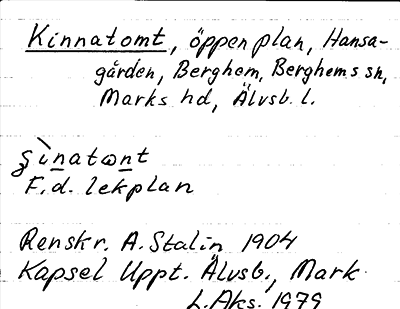 Kinnatomt, öppen plan, Hansa-
gården, Berghem, Berghems sn,
Marks hd, Älvsb. l.
s̀inatωnt
F.d. lekplan
Renskr. A. Stalin 1904
Kapsel Uppt. Älvsb., Mark
L. Aks. 1979